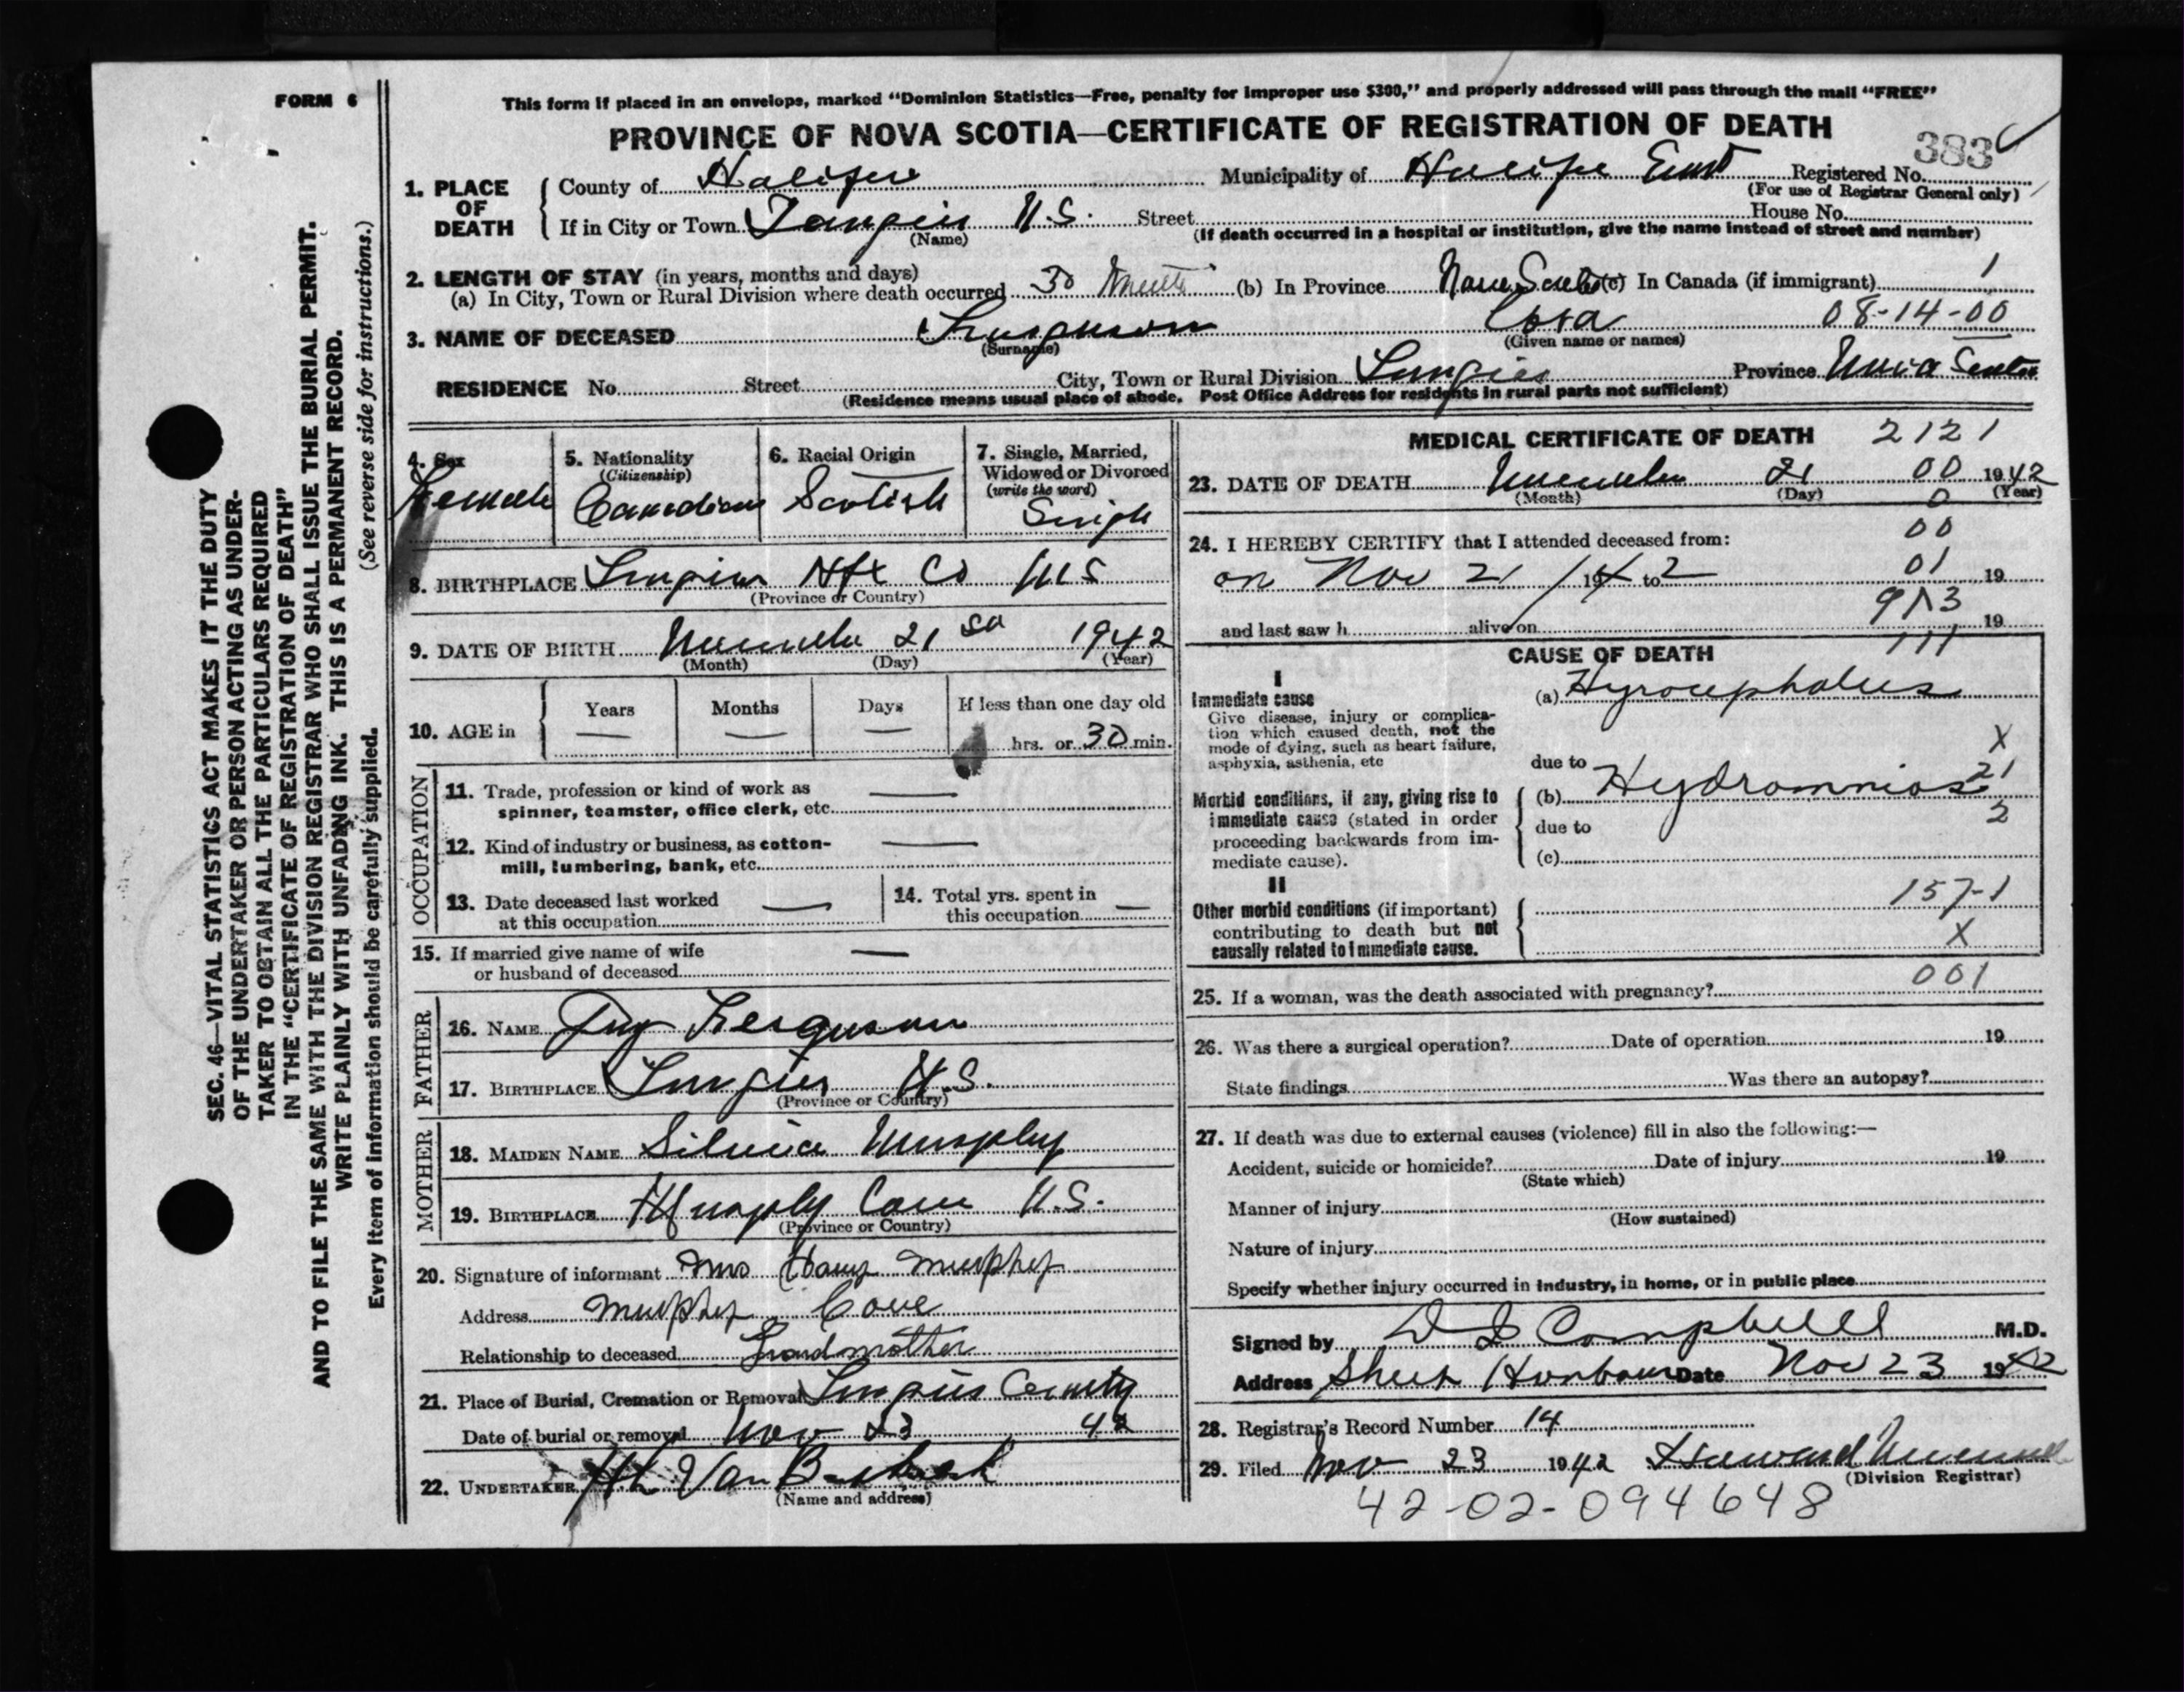 FORM 6
This form if placed in an envelope, marked "Dominion Statistics—Free, penalty for improper use $300," and properly addressed will pass through the mail "FREE"
PROVINCE OF NOVA SCOTIA—CERTIFICATE OF REGISTRATION OF DEATH
383
1. PLACE OF DEATH
County of Halifax Municipality of Halifax East Registered No.
(For use of Registrar General only)
If in City or Town Tangier N.S. Street House No.
(Name) (If death occurred in a hospital or institution, give the name instead of street and number)
2. LENGTH OF STAY (in years, months and days)
(a) In City, Town or Rural Division where death occurred 30 (b) In Province Nova Scotia (c) In Canada (if immigrant) 1
3. NAME OF DECEASED Ferguson 08-14-00
(Surname) (Given name or names)
RESIDENCE No. Street City, Town or Rural Division Tangier Province Nova Scotia
(Residence means usual place of abode. Post Office Address for residents in rural parts not sufficient)
4. Sex Female
5. Nationality (Citizenship) Canadian
6. Racial Origin Scotish
7. Single, Married, Widowed or Divorced (write the word) Single
8. BIRTHPLACE Tangier Hfx Co N S
(Province or Country)
9. DATE OF BIRTH November 21 1942
(Month) (Day) (Year)
10. AGE in Years — Months — Days — If less than one day old hrs. or 30 min.
OCCUPATION
11. Trade, profession or kind of work as spinner, teamster, office clerk, etc. —
12. Kind of industry or business, as cotton-mill, lumbering, bank, etc. —
13. Date deceased last worked at this occupation —
14. Total yrs. spent in this occupation —
15. If married give name of wife or husband of deceased —
FATHER
16. NAME Ferguson
17. BIRTHPLACE Tangier N.S.
(Province or Country)
MOTHER
18. MAIDEN NAME Silvia Murphy
19. BIRTHPLACE Murphy Cove N.S.
(Province or Country)
20. Signature of informant Mrs Murphy
Address Murphy Cove
Relationship to deceased Grandmother
21. Place of Burial, Cremation or Removal Tangier
Date of burial or removal Nov 23 42
22. UNDERTAKER
(Name and address)
MEDICAL CERTIFICATE OF DEATH 2121
23. DATE OF DEATH November 21 00 1942
(Month) (Day) (Year)
0
24. I HEREBY CERTIFY that I attended deceased from: 00
on Nov 21/ 1942 to 01 19
913
and last saw h alive on 19
111
CAUSE OF DEATH
I
Immediate cause
Give disease, injury or complication which caused death, not the mode of dying, such as heart failure, asphyxia, asthenia, etc
(a) Hyrocephalus
X
due to
Morbid conditions, if any, giving rise to immediate cause (stated in order proceeding backwards from immediate cause).
(b) Hydromnios 21
due to 2
(c)
II
Other morbid conditions (if important) contributing to death but not causally related to immediate cause.
157-1
X
001
25. If a woman, was the death associated with pregnancy?
26. Was there a surgical operation? Date of operation 19
State findings Was there an autopsy?
27. If death was due to external causes (violence) fill in also the following:—
Accident, suicide or homicide? Date of injury 19
(State which)
Manner of injury
(How sustained)
Nature of injury
Specify whether injury occurred in industry, in home, or in public place
Signed by Campbell M.D.
Address Sheet Harbour Date Nov 23 1942
28. Registrar's Record Number 14
29. Filed Nov 23 1942
(Division Registrar)
42-02-094648
SEC. 46—VITAL STATISTICS ACT MAKES IT THE DUTY
OF THE UNDERTAKER OR PERSON ACTING AS UNDER-
TAKER TO OBTAIN ALL THE PARTICULARS REQUIRED
IN THE "CERTIFICATE OF REGISTRATION OF DEATH"
AND TO FILE THE SAME WITH THE DIVISION REGISTRAR WHO SHALL ISSUE THE BURIAL PERMIT.
WRITE PLAINLY WITH UNFADING INK. THIS IS A PERMANENT RECORD.
Every item of information should be carefully supplied. (See reverse side for instructions.)